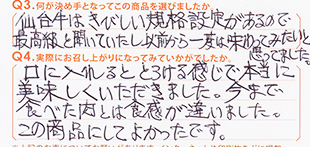 Q3.何が決め手となってこの商品を選びましたか
仙台牛はきびしい規格設定があるので
最高級と聞いていたし以前から一度は味わってみたいと
思ってました。
Q4.実際にお召し上がりになってみていかがでしたか。
口に入れるととろける感じで本当に
美味しくいただきました。今まで
食べた肉とは食感が違いました。
この商品にしてよかったです。